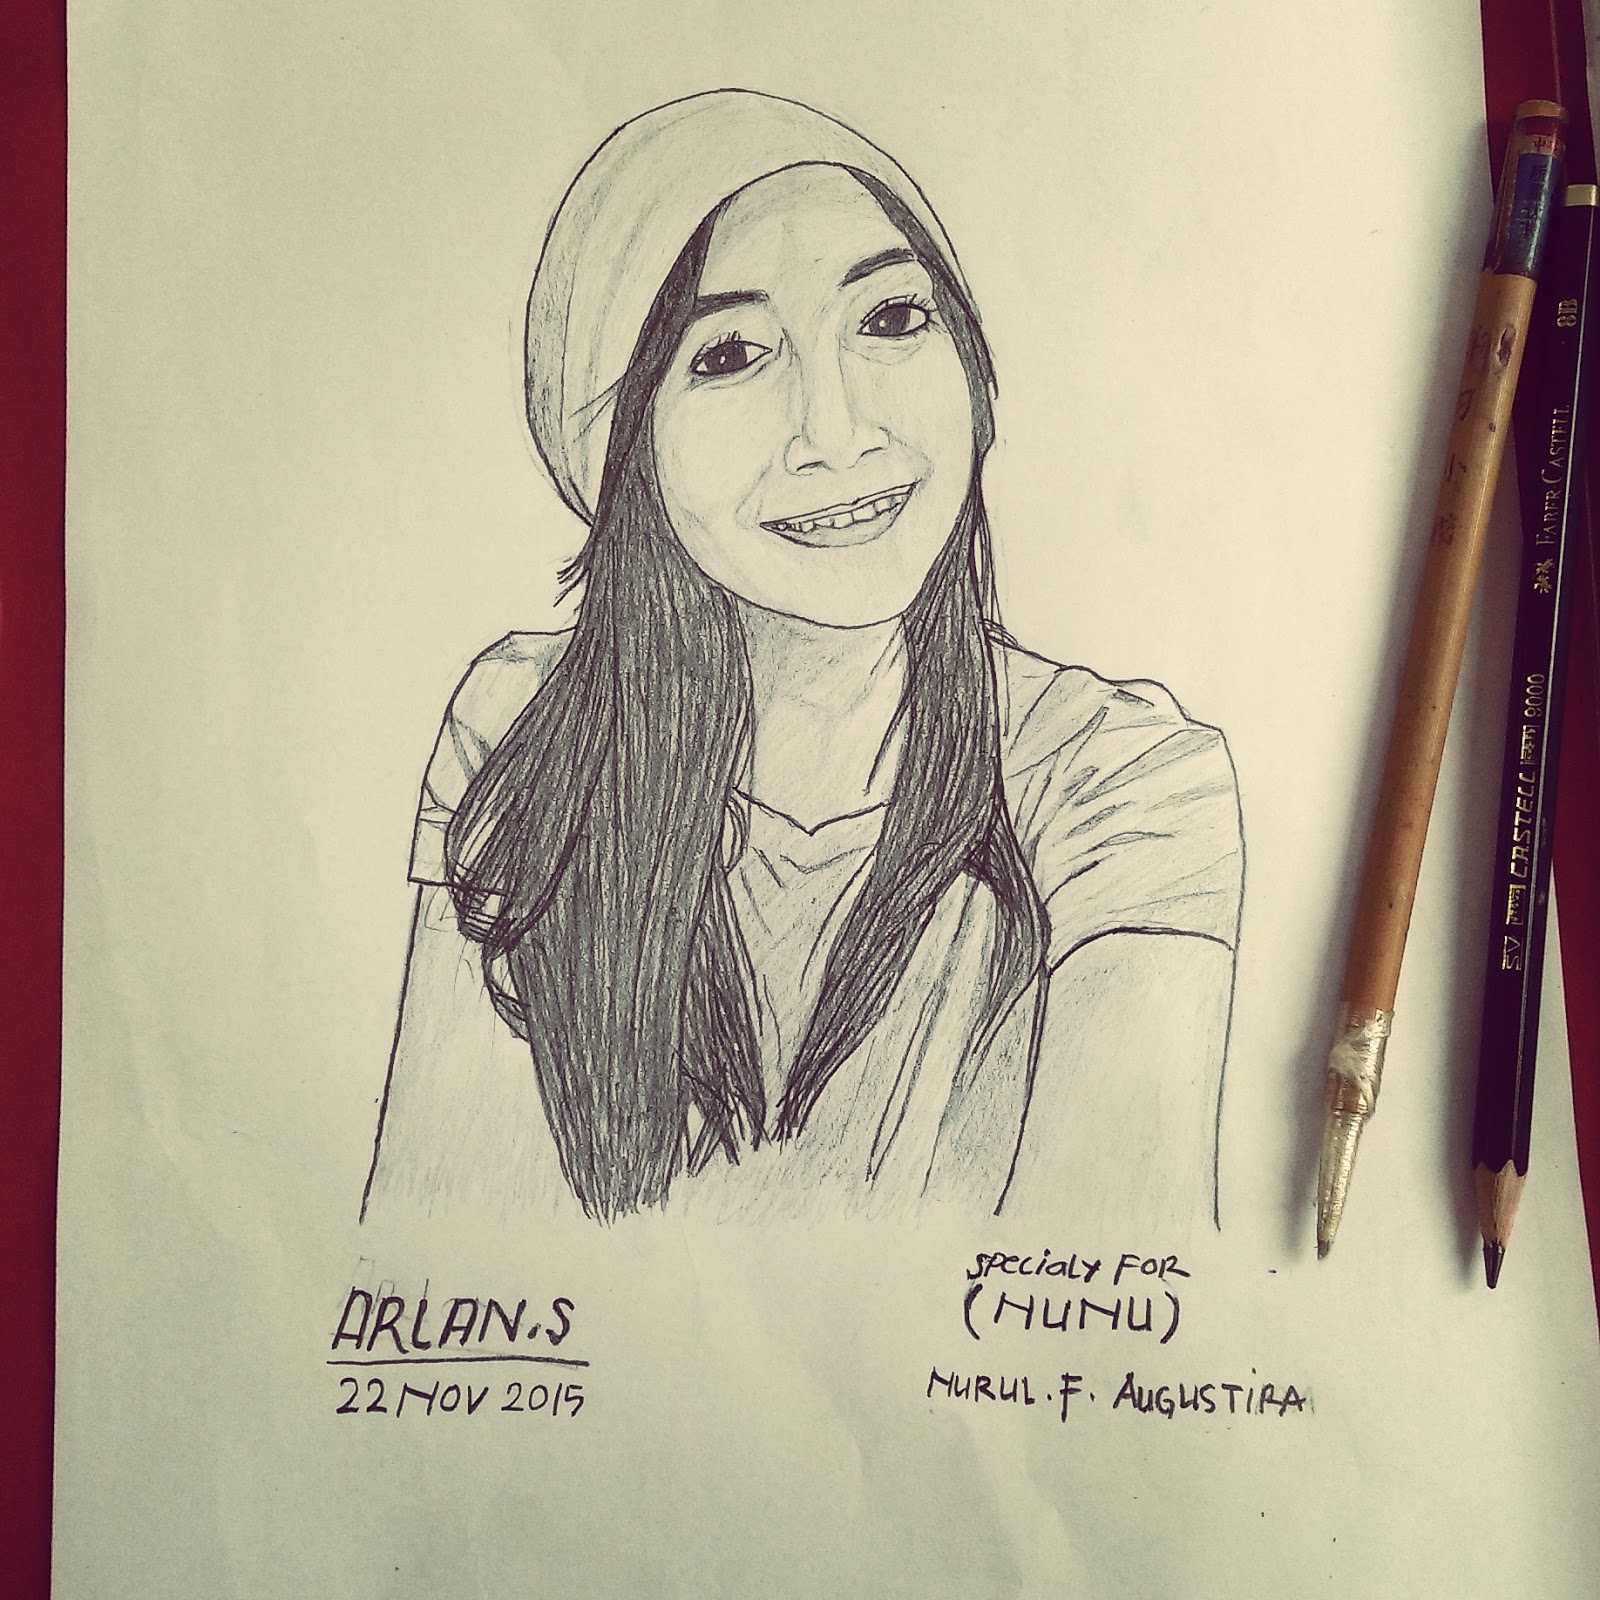 ARLAN.S
22 NOV 2015
SPECIALY FOR
(NUNU)
NURUL.F. AUGUSTIRA
SV CASTELL 9000 FABER CASTELL 8B